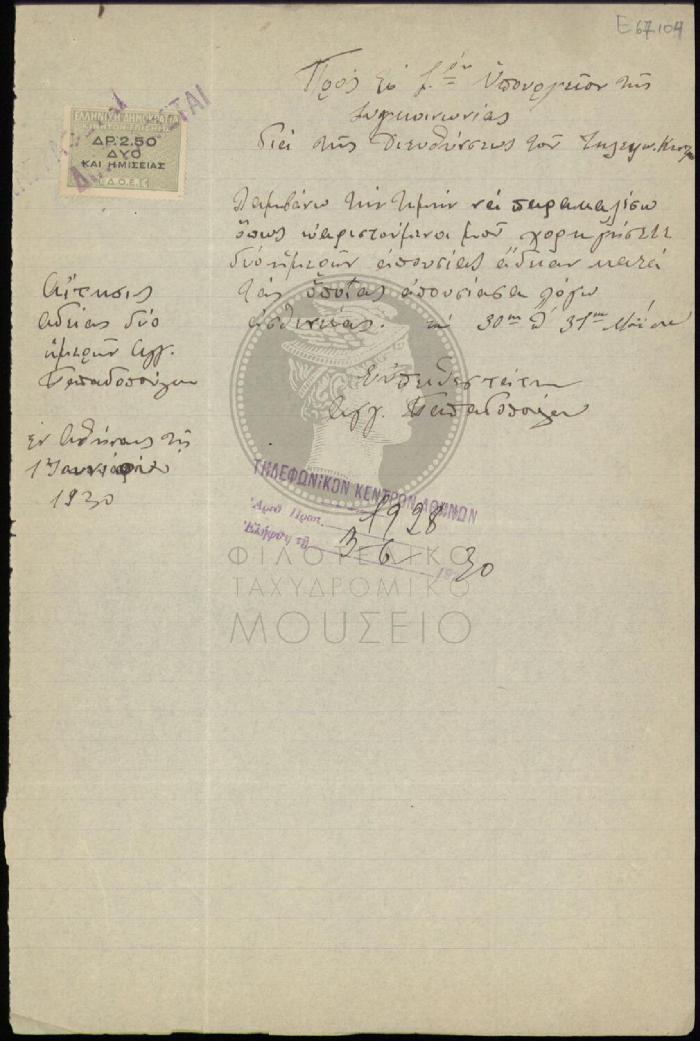 Ε67.104
Πρὸς τὸ Σ. ὸν Ὑπουργεῖον τῆς
Συγκοινωνίας
διὰ τῆς Διευθύνσεως τοῦ Τηλεφων. Κέντρου
ΕΛΛΗΝΙΚΗ ΔΗΜΟΚΡΑΤΙΑ
ΔΡ. 2.50
ΔΥΟ
ΚΑΙ ΗΜΙΣΕΙΑΣ
Δ.Ο.Ε.
Λαμβάνω τὴν τιμὴν νὰ παρακαλέσω
ὅπως εὐαρεστούμενοι μοῦ χορηγήσετε
δύο ἡμερῶν ἀπουσίας ἄδειαν κατὰ
τὰς ὁποίας ἀπουσίασα λόγω
ἀσθενείας. 30ην 31ην Μαΐου
Αἴτησις
ἀδείας δύο
ἡμερῶν Αγγ.
Παπαδοπούλου
Εὐπειθεστάτη
Αγγ. Παπαδοπούλου
Ἐν Ἀθήναις τῇ
1 Ἰουνίου
1930
ΤΗΛΕΦΩΝΙΚΟΝ ΚΕΝΤΡΟΝ ΑΘΗΝΩΝ
Ἀριθ. Πρωτ. 1928
Ἐλήφθη τῇ 3-6 1930
ΦΙΛΟΤΕΛΙΚΟ
ΤΑΧΥΔΡΟΜΙΚΟ
ΜΟΥΣΕΙΟ